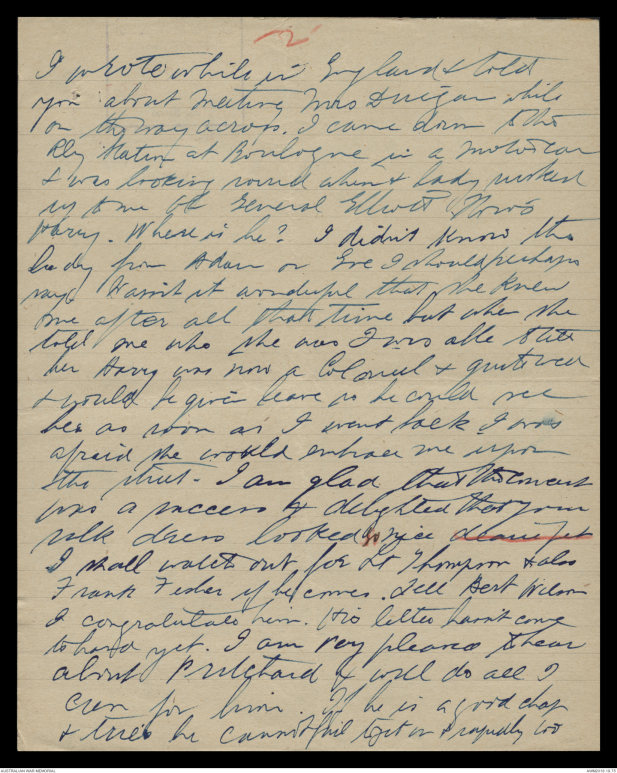 2
I wrote while in England & told
you about meeting Mrs Durigan while
on the way across. I came down to the
Rly Station at Boulogne in a motor car
& was looking round when a lady rushed
up to me Oh General Elliott How's
Harry. Where is he? I didn't know the
lady from Adam or Eve I should perhaps
say. Wasn't it wonderful that she knew
me after all that time but when she
told me who she was I was able to tell
her Harry was now a Colonel & quite well
& would be given leave so he could see
her as soon as I went back. I was
afraid she would embrace me upon
the street. I am glad that the concert
was a success & delighted that your
silk dress looked so nice
I shall watch out for Lt Thompson & also
Frank Fisher if he comes. Tell Bert Wilson
I congratulate him. His letter hasn't come
to hand yet. I am very pleased to hear
about Pritchard & will do all I
can for him. If he is a good chap
& tries he cannot fail to get on & rapidly too
AUSTRALIAN WAR MEMORIAL